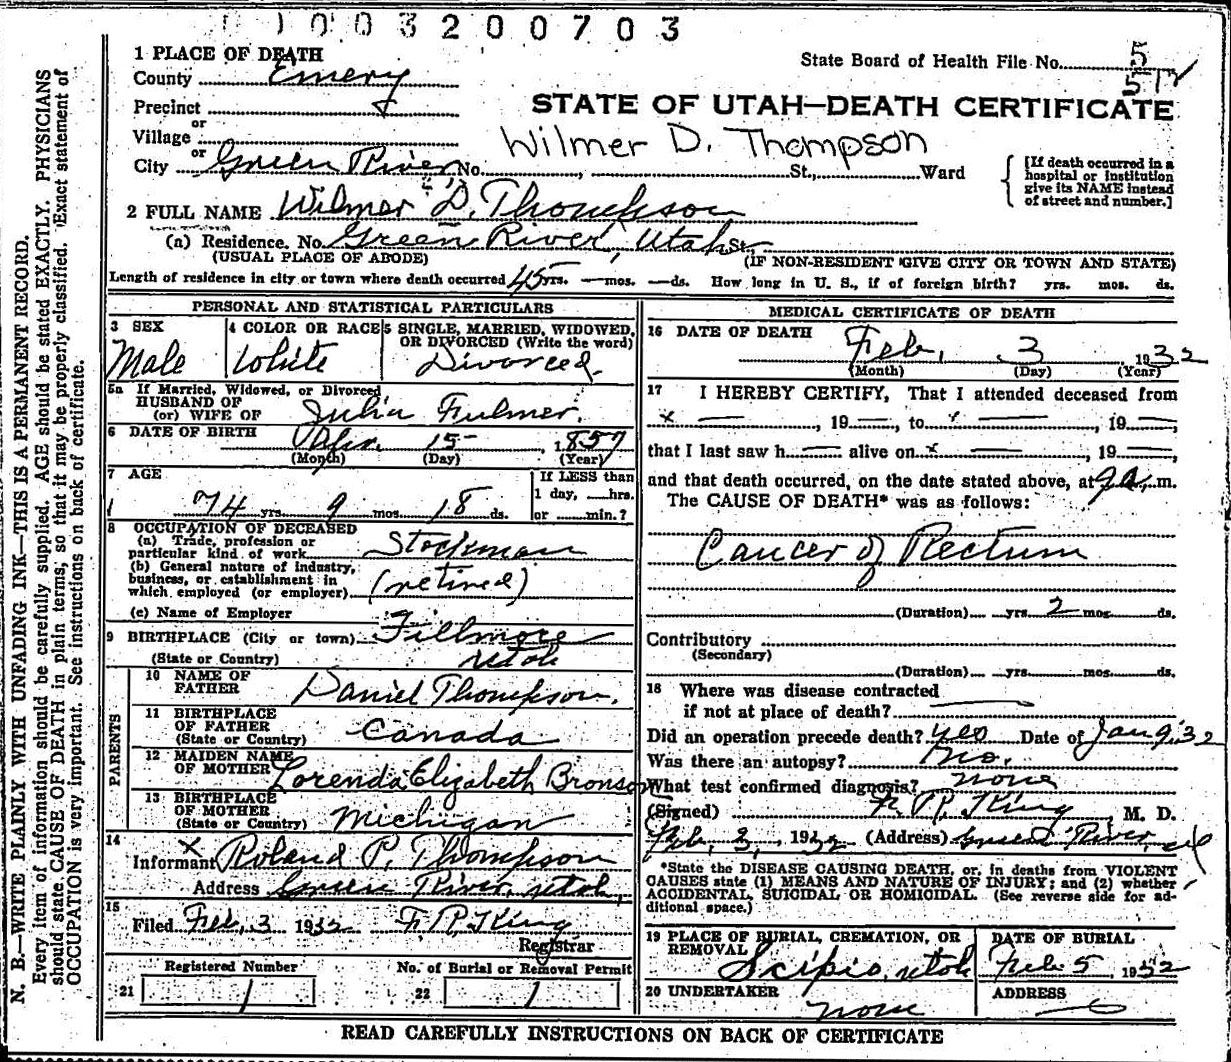 0 1 0 0 3 2 0 0 7 0 3
1 PLACE OF DEATH
County Emery
State Board of Health File No. 5
Precinct
STATE OF UTAH—DEATH CERTIFICATE
or
Village
Wilmer D. Thompson
or
City Green River No. , St., Ward
[If death occurred in a hospital or institution give its NAME instead of street and number.]
2 FULL NAME Wilmer D. Thompson
(a) Residence. No. Green River, Utah St.
(USUAL PLACE OF ABODE) (IF NON-RESIDENT GIVE CITY OR TOWN AND STATE)
Length of residence in city or town where death occurred 45 yrs. — mos. — ds. How long in U. S., if of foreign birth? yrs. mos. ds.
PERSONAL AND STATISTICAL PARTICULARS
3 SEX
Male
4 COLOR OR RACE
White
5 SINGLE, MARRIED, WIDOWED, OR DIVORCED (Write the word)
Divorced.
5a If Married, Widowed, or Divorced
HUSBAND OF
(or) WIFE OF Julia Fulmer.
6 DATE OF BIRTH Apr. 15 1857
(Month) (Day) (Year)
7 AGE
74 yrs. 9 mos. 18 ds.
If LESS than
1 day, ___hrs.
or ___min.?
8 OCCUPATION OF DECEASED
(a) Trade, profession or
particular kind of work Stockman
(b) General nature of industry,
business, or establishment in
which employed (or employer) (retired)
(c) Name of Employer
9 BIRTHPLACE (City or town) Fillmore
(State or Country) Utah
PARENTS
10 NAME OF
FATHER Daniel Thompson.
11 BIRTHPLACE
OF FATHER
(State or Country) Canada
12 MAIDEN NAME
OF MOTHER Lorenda Elizabeth Bronson
13 BIRTHPLACE
OF MOTHER
(State or Country) Michigan
14
Informant Roland P. Thompson
Address Green River, Utah,
15
Filed Feb, 3 1932 F. R. King
Registrar
Registered Number
21 1
No. of Burial or Removal Permit
22 1
MEDICAL CERTIFICATE OF DEATH
16 DATE OF DEATH Feb, 3, 1932
(Month) (Day) (Year)
17 I HEREBY CERTIFY, That I attended deceased from
x —, 19—, to x —, 19—,
that I last saw h— alive on x —, 19—,
and that death occurred, on the date stated above, at 9 a. m.
The CAUSE OF DEATH* was as follows:
Cancer of Rectum
(Duration) yrs. 2 mos. ds.
Contributory
(Secondary)
(Duration) yrs. mos. ds.
18 Where was disease contracted
if not at place of death? —
Did an operation precede death? yes Date of Jan 9, 32
Was there an autopsy? No.
What test confirmed diagnosis? none
(Signed) F. R. King, M. D.
Feb, 3, 1932 (Address) Green River, Ut
*State the DISEASE CAUSING DEATH, or, in deaths from VIOLENT
CAUSES state (1) MEANS AND NATURE OF INJURY; and (2) whether
ACCIDENTAL, SUICIDAL OR HOMICIDAL. (See reverse side for ad-
ditional space.)
19 PLACE OF BURIAL, CREMATION, OR
REMOVAL
Scipio, Utah
DATE OF BURIAL
Feb 5, 1932
20 UNDERTAKER
none
ADDRESS
READ CAREFULLY INSTRUCTIONS ON BACK OF CERTIFICATE
N. B.—WRITE PLAINLY WITH UNFADING INK—THIS IS A PERMANENT RECORD.
Every item of information should be carefully supplied. AGE should be stated EXACTLY. PHYSICIANS
should state CAUSE OF DEATH in plain terms, so that it may be properly classified. Exact statement of
OCCUPATION is very important. See instructions on back of certificate.